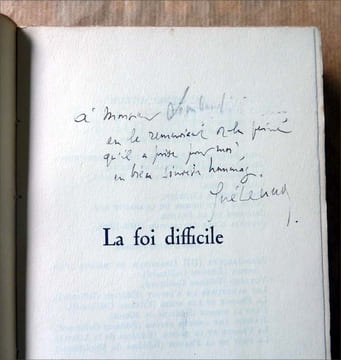 à Monsieur
en le remerciant de la peine
qu'il a prise pour moi
en bien sincère hommage.
La foi difficile